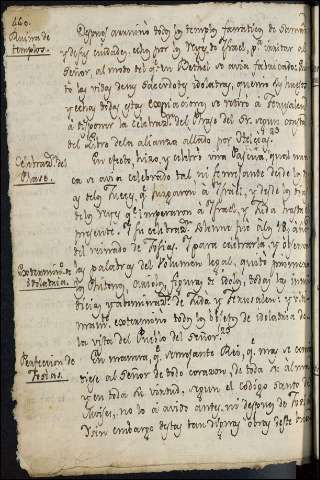 660.
Ruina de
templos.
Despues arruinó todos los templos fanaticos de Samaria
y de sus ciudades, echos por los Reyes de Israel, p.ª irritar al
Señor, al modo del q.e en Bethel se avia fabricado:
to las vidas de sus Sacerdotes idolatras, quemó sus huesos
y echas todas estas expiaciones, se retiró a Jerusalem
a disponer la celebraz.n del Phase del Sr. segun consta
del Libro de la alianza allado por Helcias.
Celebraz.n del
Phase.
En efecto, hizo, y celebró una Pascua, qual nunca
ca se avia celebrado tal ni semejante desde los
as de los Jueces, q.e juzgaron à Israel, y desde los
de los Reyes q.e imperaron à Israel, y Juda hasta
presente. Fu celebraz.n solemne fue al año 18,
del reinado de Josias. Y para celebrarla, y observar
las palabras del Volumen legal, quitó primero
los Phitones, Ariolos, figuras de Idolos, todas las inmun
dicias, y abominaz.s de Juda y Jerusalem: y
Exterminio de
idolatria.
mam.te exterminó todos los objetos de idolatria de
la vista del Pueblo del Señor.
Perfeccion de
Josias.
En manera, q.e semejante Rei, q.e mas se convir
tiese al Señor de todo corazon, de toda su alma
y en toda su virtud, segun el codigo santo de
Moises, no lo a avido antes, ni despues de Josias
Sin embargo destas tan dignas obras deste buen